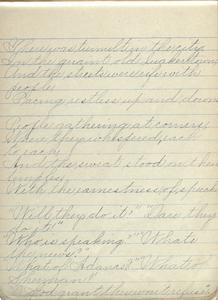 There was tumult in the city
In the quaint old Quaker town,
And the streets were rife with
people
Pacing restless up and down
People gathering at corners
Where they whispered each
to each
And the sweat stood out on their
temples
With the earnestness of speech
"Will they do it?" "Dare they
do it?"
"Who is speaking?" "What's
the news?"
"What of Adams?" "What of
Sherman?"
"God grant they won't refuse"